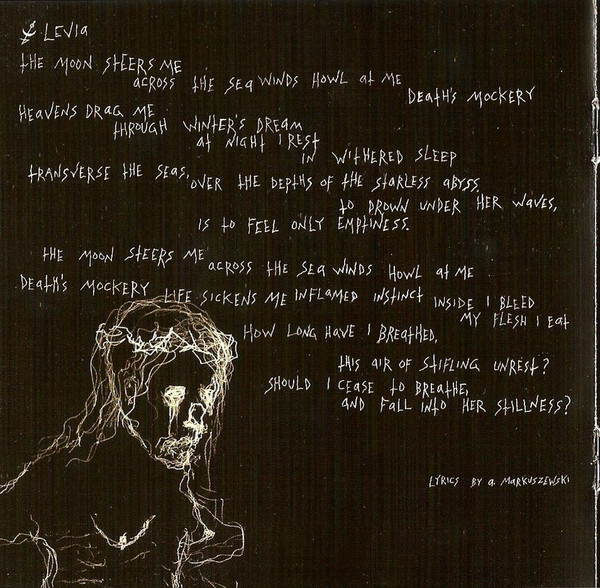 LEVIA
THE MOON STEERS ME
ACROSS THE SEA WINDS HOWL AT ME
DEATH'S MOCKERY
HEAVENS DRAG ME
THROUGH WINTER'S DREAM
AT NIGHT I REST
IN WITHERED SLEEP
TRANSVERSE THE SEAS, OVER THE DEPTHS OF THE STARLESS ABYSS,
TO DROWN UNDER HER WAVES,
IS TO FEEL ONLY EMPTINESS.
THE MOON STEERS ME ACROSS THE SEA WINDS HOWL AT ME
DEATH'S MOCKERY LIFE SICKENS ME INFLAMED INSTINCT INSIDE I BLEED
MY FLESH I EAT
HOW LONG HAVE I BREATHED,
THIS AIR OF STIFLING UNREST?
SHOULD I CEASE TO BREATHE,
AND FALL INTO HER STILLNESS?
LYRICS BY A. MARKUSZEWSKI